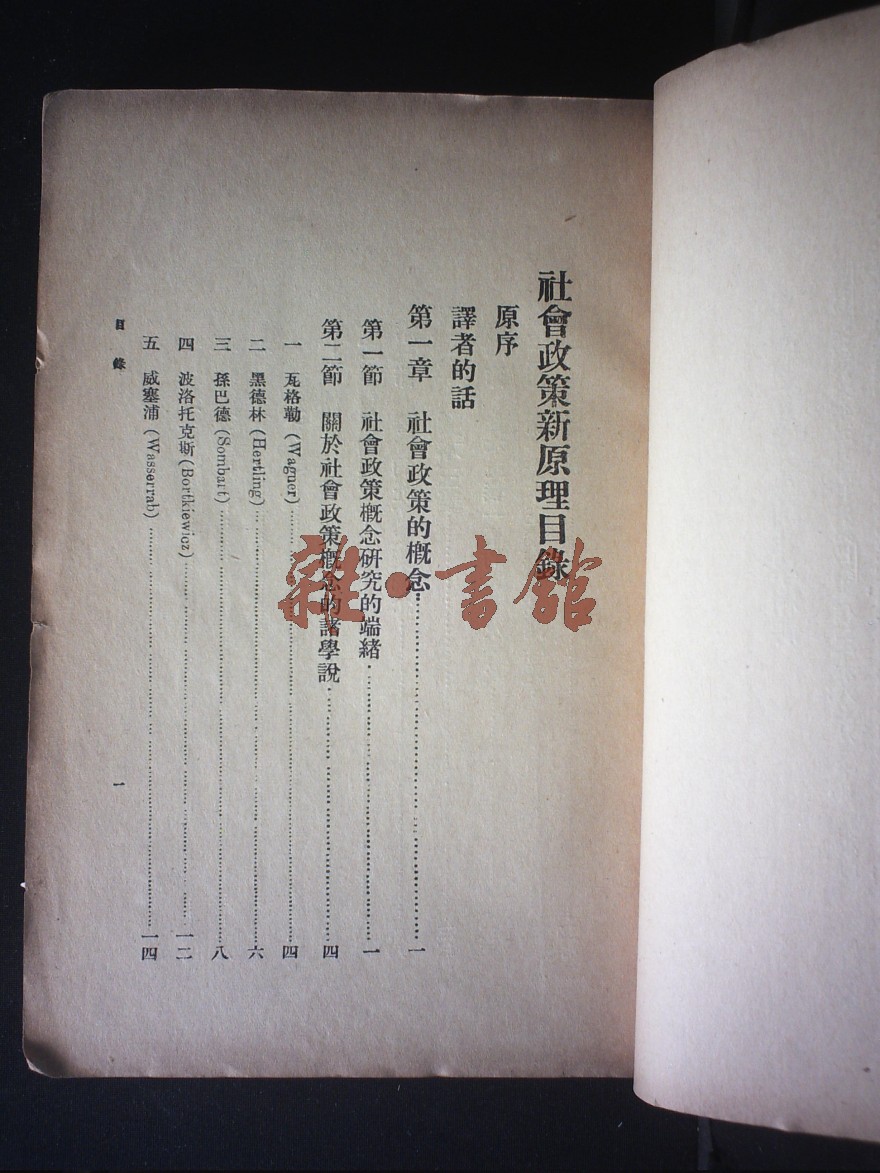 社會政策新原理目錄
原序
譯者的話
第一章 社會政策的概念……一
第一節 社會政策概念研究的端緒……一
第二節 關於社會政策概念的諸學說……四
一 瓦格勒(Wagner)……四
二 黑德林(Hertling)……六
三 孫巴德(Sombart)……八
四 波洛托克斯(Bortkiewicz)……一二
五 威塞浦(Wasserrab)……一四
目錄
一
雜·書館